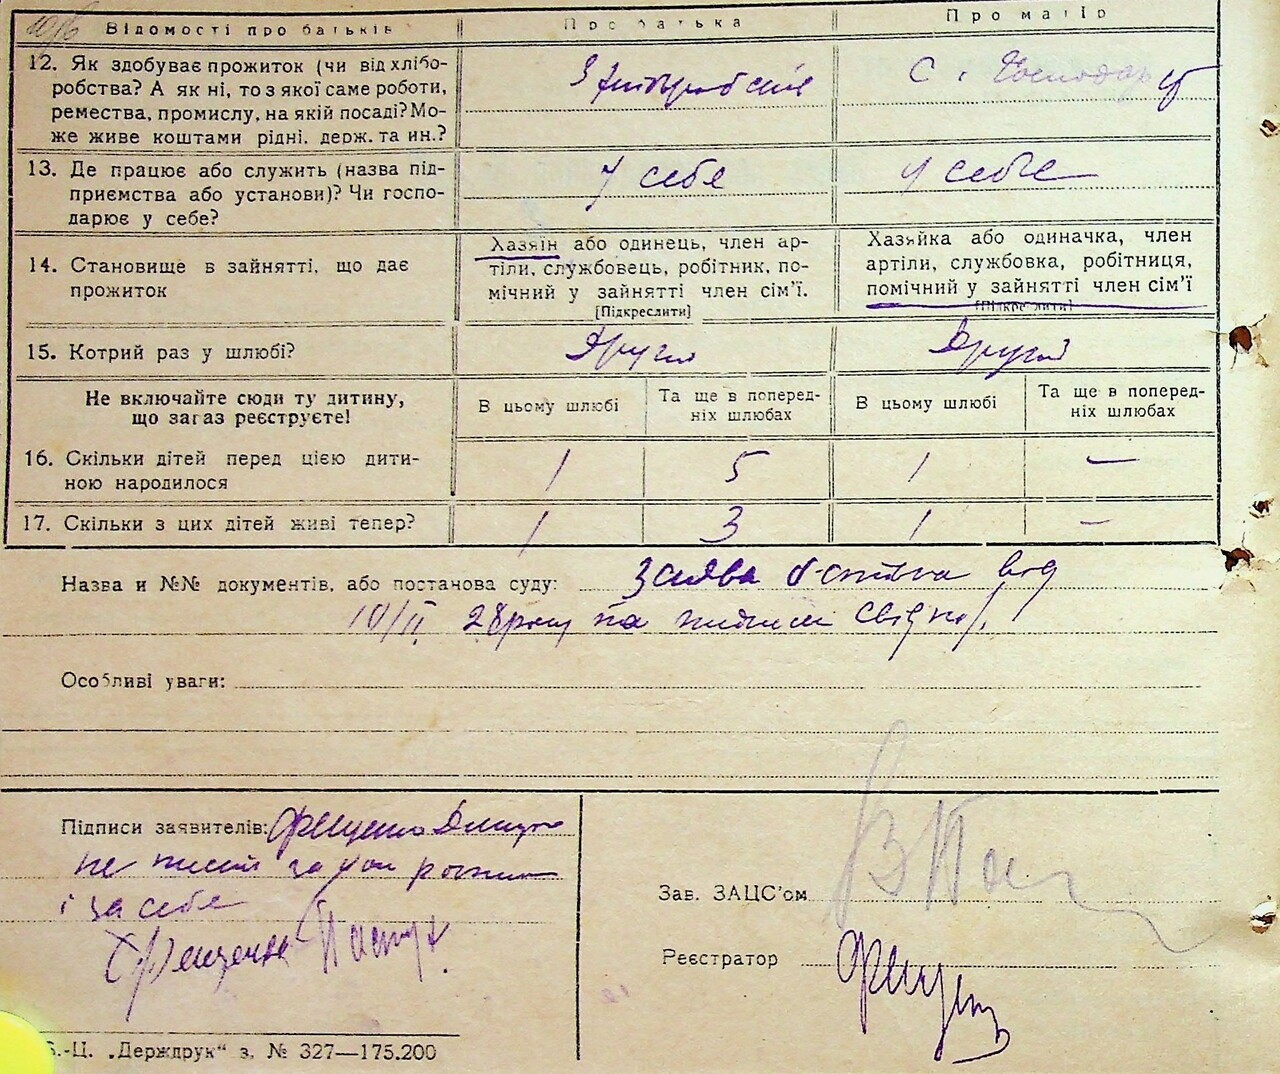 Відомості про батьків
Про батька
Про матір
12. Як здобуває прожиток (чи від хлібо-
робства? А як ні, то з якої саме роботи,
ремества, промислу, на якій посаді? Мо-
же живе коштами рідні, держ. та ин.?
З хліборобства
С. Господар
13. Де працює або служить (назва під-
приємства або установи)? Чи госпо-
дарює у себе?
У себе
У себе
14. Становище в зайнятті, що дає
прожиток
Хазяїн або одинець, член ар-
тіли, службовець, робітник, по-
мічний у зайнятті член сім'ї.
[Підкреслити]
Хазяйка або одиначка, член
артіли, службовка, робітниця,
помічний у зайнятті член сім'ї
[Підкреслити]
15. Котрий раз у шлюбі?
Другий
Другий
Не включайте сюди ту дитину,
що зараз реєструєте!
В цьому шлюбі
Та ще в поперед-
ніх шлюбах
В цьому шлюбі
Та ще в поперед-
ніх шлюбах
16. Скільки дітей перед цією дити-
ною народилося
1
5
1
—
17. Скільки з цих дітей живі тепер?
1
3
1
—
Назва и №№ документів, або постанова суду: заява батька від
10/II 28 року та підписи свідків
Особливі уваги:
Підписи заявителів:
і за себе
Зав. ЗАЦС'ом
Реєстратор
-Ц. „Держдрук" з. № 327—175.200